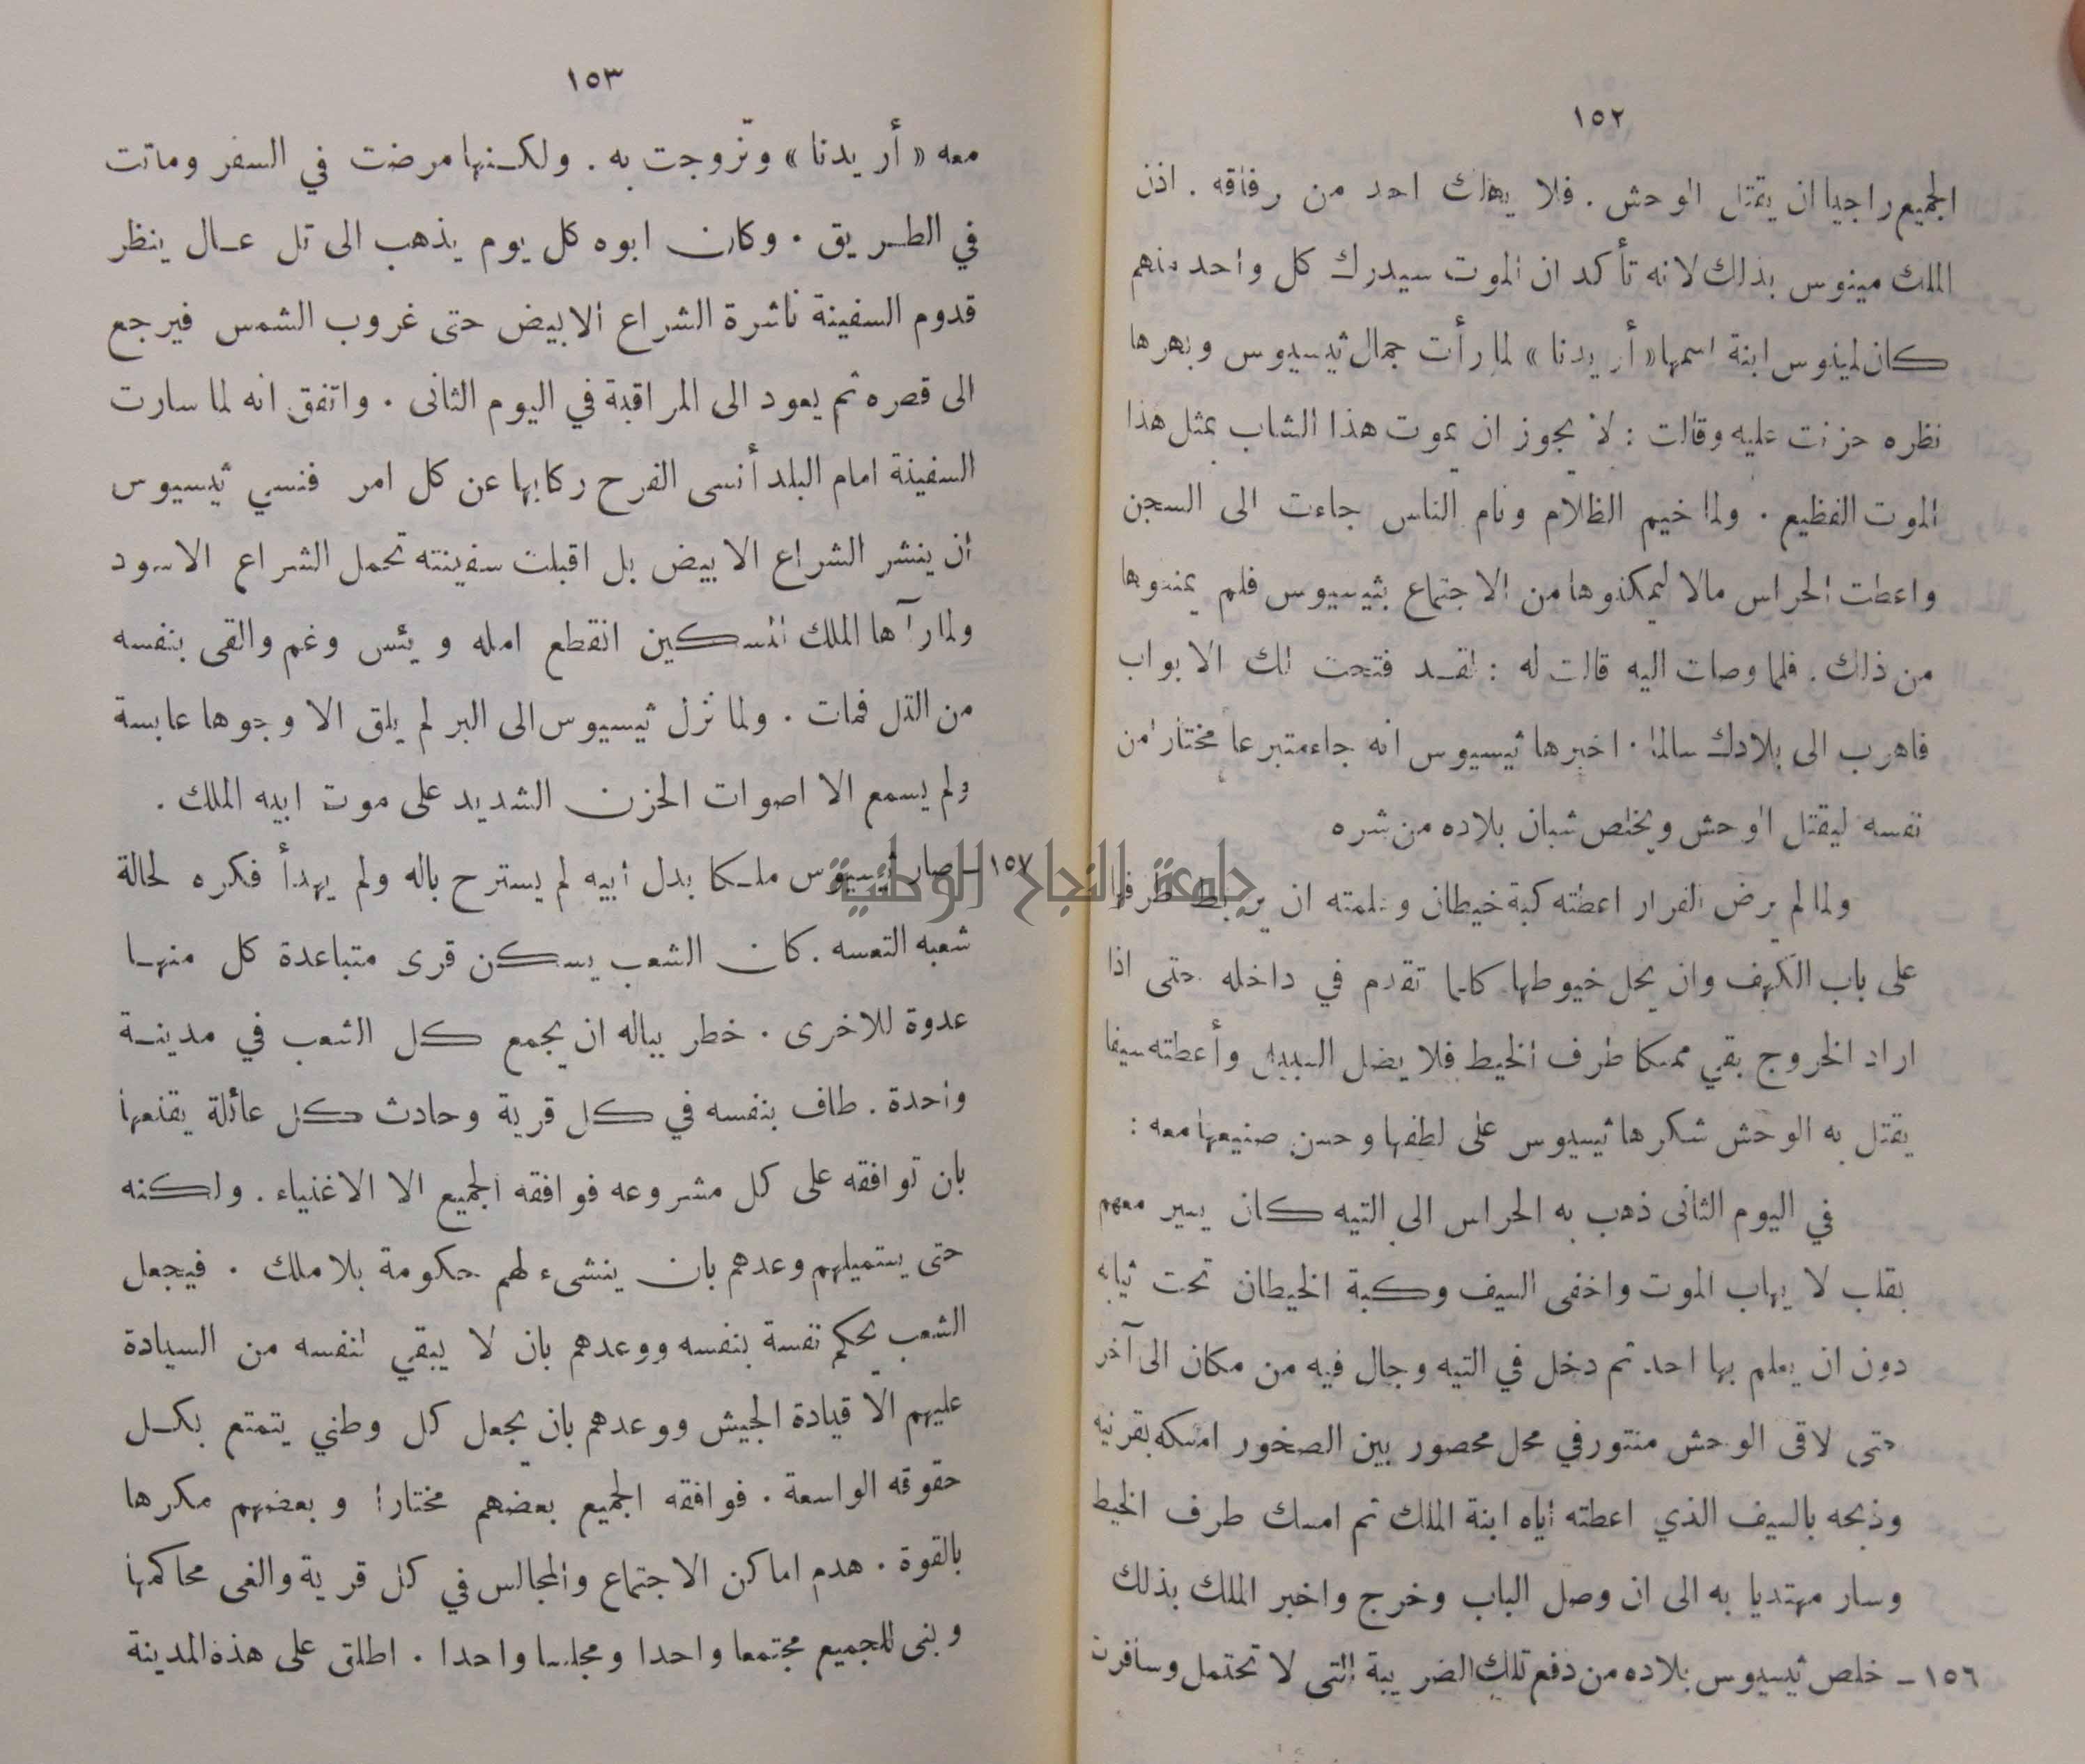 ١٥٢
الجميع راجيا ان يقتل الوحش . فلا يهلك احد من رفاقه . اذن
الملك مينوس بذلك لانه تأكد ان الموت سيدرك كل واحد منهم
كان لمينوس ابنة اسمها « أريدنا » لما رأت جمال ثيسيوس وبهرها
نظره حزنت عليه وقالت : لا يجوز ان يموت هذا الشاب بمثل هذا
الموت الفظيع . ولما خيم الظلام ونام الناس جاءت الى السجن
واعطت الحراس مالا ليمكنوها من الاجتماع بثيسيوس فلم يمنعوها
من ذلك . فلما وصلت اليه قالت له : لقد فتحت لك الابواب
فاهرب الى بلادك سالما . اخبرها ثيسيوس انه جاء متبرعا مختارا من
نفسه ليقتل الوحش ويخلص شبان بلاده من شره
ولما لم يرض الفرار اعطته كبة خيطان وعلمته ان يربط طرفها
على باب الكهف وان يحل خيوطها كلما تقدم في داخله حتى اذا
اراد الخروج بقي ممسكا طرف الخيط فلا يضل السبيل وأعطته سيفا
يقتل به الوحش شكرها ثيسيوس على لطفها وحسن صنيعها معه :
في اليوم الثانى ذهب به الحراس الى التيه كان يسير معهم
بقلب لا يهاب الموت واخفى السيف وكبة الخيطان تحت ثيابه
دون ان يعلم بها احد ثم دخل في التيه وجال فيه من مكان الى آخر
حتى لاقى الوحش منتور في محل محصور بين الصخور امسكه بقرنيه
وذبحه بالسيف الذي اعطته اياه ابنة الملك ثم امسك طرف الخيط
وسار مهتديا به الى ان وصل الباب وخرج واخبر الملك بذلك
١٥٦ - خلص ثيسيوس بلاده من دفع تلك الضريبة التى لا تحتمل وسافرت
١٥٣
معه « أريدنا » وتزوجت به . ولكنها مرضت في السفر وماتت
في الطريق . وكان ابوه كل يوم يذهب الى تل عال ينظر
قدوم السفينة ناشرة الشراع الابيض حتى غروب الشمس فيرجع
الى قصره ثم يعود الى المراقبة في اليوم الثانى . واتفق انه لما سارت
السفينة امام البلد أنسى الفرح ركابها عن كل امر فنسي ثيسيوس
ان ينشر الشراع الابيض بل اقبلت سفينته تحمل الشراع الاسود
ولما رآها الملك المسكين انقطع امله ويئس وغم والقى بنفسه
من التل فمات . ولما نزل ثيسيوس الى البر لم يلق الا وجوها عابسة
ولم يسمع الا اصوات الحزن الشديد على موت ابيه الملك .
١٥٧ - صار ثيسيوس ملكا بدل ابيه لم يسترح باله ولم يهدأ فكره لحالة
شعبه التعسه . كان الشعب يسكن قرى متباعدة كل منها
عدوة للاخرى . خطر بباله ان يجمع كل الشعب في مدينة
واحدة . طاف بنفسه في كل قرية وحادث كل عائلة يقنعها
بان توافقه على كل مشروعه فوافقه الجميع الا الاغنياء . ولكنه
حتى يستميلهم وعدهم بان ينشىء لهم حكومة بلا ملك . فيجعل
الشعب يحكم نفسة بنفسه ووعدهم بان لا يبقي لنفسه من السيادة
عليهم الا قيادة الجيش ووعدهم بان يجعل كل وطني يتمتع بكل
حقوقه الواسعة . فوافقه الجميع بعضهم مختارا وبعضهم مكرها
بالقوة . هدم اماكن الاجتماع والمجالس في كل قرية والغى محاكمها
وبنى للجميع مجتمعا واحدا ومجلسا واحدا . اطلق على هذه المدينة
جامعة النجاح الوطنية